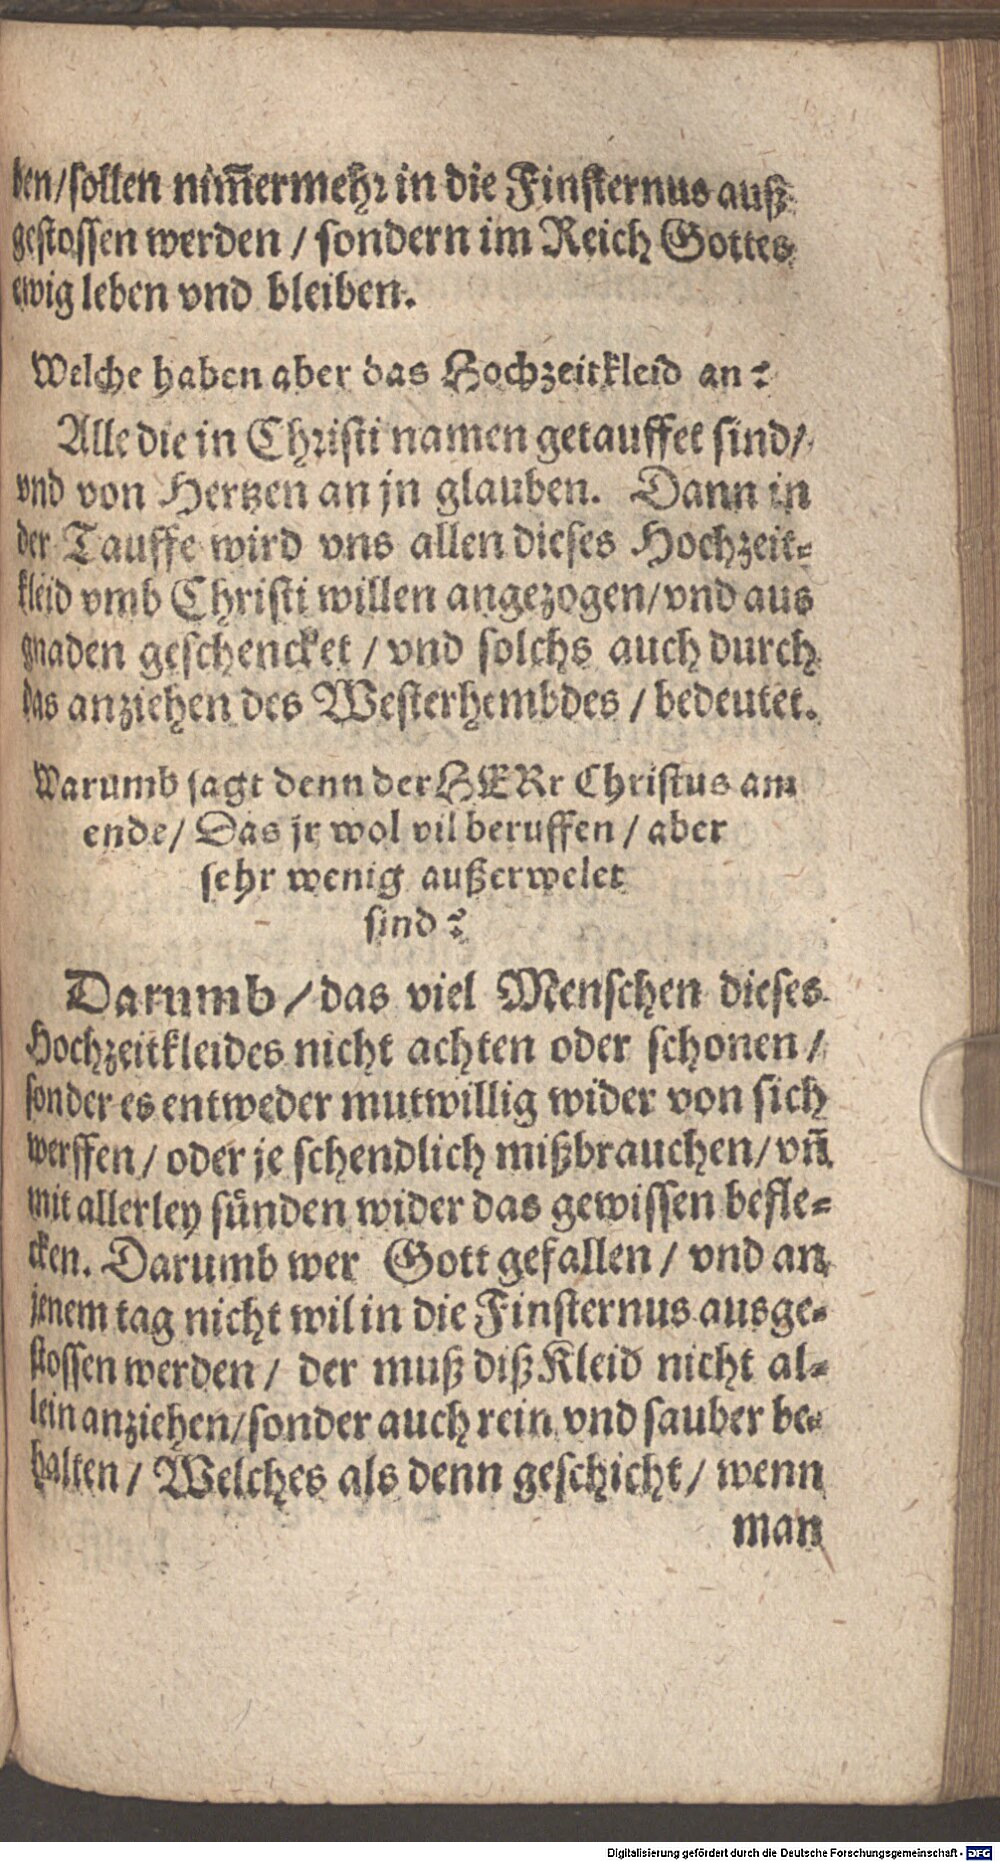 ben/sollen nim̃ermehr in die Finsternus auß
gestossen werden / sondern im Reich Gottes
ewig leben vnd bleiben.
Welche haben aber das Hochzeitkleid an?
Alle die in Christi namen getauffet sind/
vnd von Hertzen an jn glauben. Dann in
der Tauffe wird vns allen dieses Hochzeit-
kleid vmb Christi willen angezogen/vnd aus
gnaden geschencket / vnd solchs auch durch
das anziehen des Westerhembdes / bedeutet.
Warumb sagt denn der HERr Christus am
ende/ Das jr wol vil beruffen / aber
sehr wenig außerwelet
sind?
Darumb / das viel Menschen dieses
Hochzeitkleides nicht achten oder schonen /
sonder es entweder mutwillig wider von sich
werffen / oder je schendlich mißbrauchen/ vñ
mit allerley sünden wider das gewissen befle-
cken. Darumb wer Gott gefallen / vnd an
jenem tag nicht wil in die Finsternus ausge-
stossen werden / der muß diß Kleid nicht al-
lein anziehen/sonder auch rein vnd sauber be-
halten / Welches als denn geschicht / wenn
man
Digitalisierung gefördert durch die Deutsche Forschungsgemeinschaft - DFG